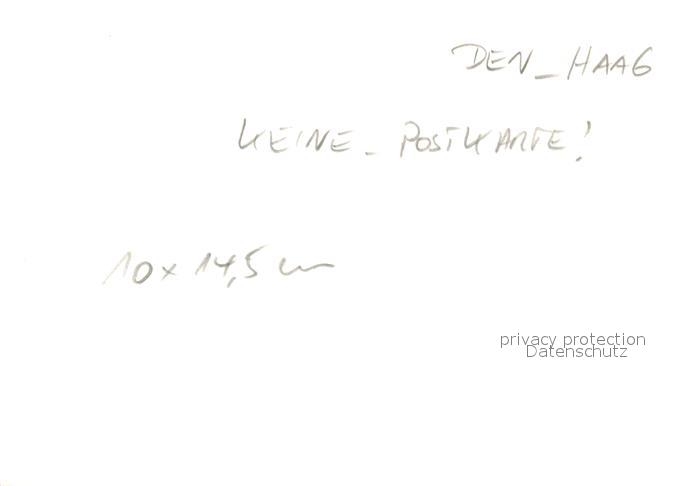 DEN_HAAG
KEINE_POSTKARTE!
10x14,5 cm
privacy protection
Datenschutz